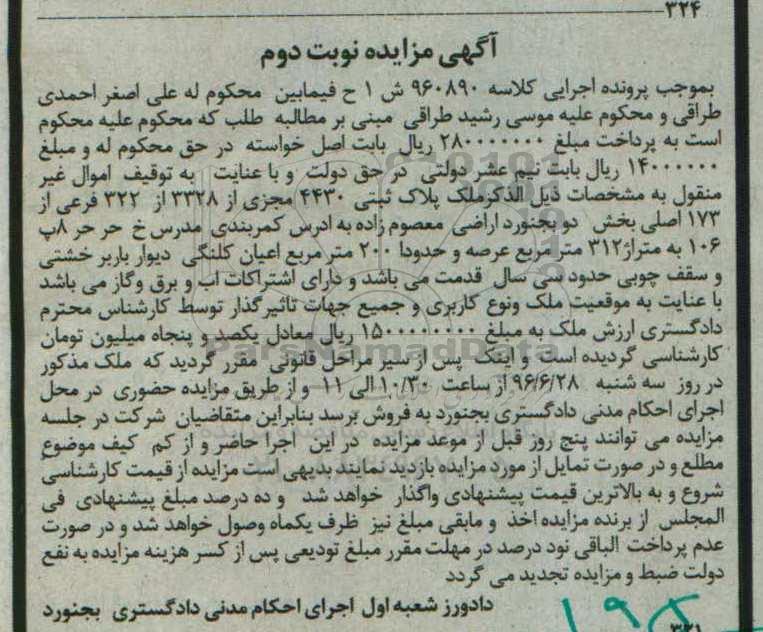 ۳۲۴
آگهی مزایده نوبت دوم
بموجب پرونده اجرایی کلاسه ۹۶۰۸۹۰ ش ۱ ح فیمابین محکوم له علی اصغر احمدی
طراقی و محکوم علیه موسی رشید طراقی مبنی بر مطالبه طلب که محکوم علیه محکوم
است به پرداخت مبلغ ۲۸۰۰۰۰۰۰۰ ریال بابت اصل خواسته در حق محکوم له و مبلغ
۱۴۰۰۰۰۰۰ ریال بابت نیم عشر دولتی در حق دولت و با عنایت به توقیف اموال غیر
منقول به مشخصات ذیل الذکرملک پلاک ثبتی ۴۴۳۰ مجزی از ۳۳۲۸ از ۳۲۲ فرعی از
۱۷۳ اصلی بخش دو بجنورد اراضی معصوم زاده به ادرس کمربندی مدرس خ حر حر ۸پ
۱۰۶ به متراژ۳۱۲ متر مربع عرصه و حدودا ۲۰۰ متر مربع اعیان کلنگی دیوار باربر خشتی
و سقف چوبی حدود سی سال قدمت می باشد و دارای اشتراکات اب و برق وگاز می باشد
با عنایت به موقعیت ملک ونوع کاربری و جمیع جهات تاثیرگذار توسط کارشناس محترم
دادگستری ارزش ملک به مبلغ ۱۵۰۰۰۰۰۰۰۰ ریال معادل یکصد و پنجاه میلیون تومان
کارشناسی گردیده است و اینک پس از سیر مراحل قانونی مقرر گردید که ملک مذکور
در روز سه شنبه ۹۶/۶/۲۸ از ساعت ۱۰/۳۰ الی ۱۱ و از طریق مزایده حضوری در محل
اجرای احکام مدنی دادگستری بجنورد به فروش برسد بنابراین متقاضیان شرکت در جلسه
مزایده می توانند پنج روز قبل از موعد مزایده در این اجرا حاضر و از کم کیف موضوع
مطلع و در صورت تمایل از مورد مزایده بازدید نمایند بدیهی است مزایده از قیمت کارشناسی
شروع و به بالاترین قیمت پیشنهادی واگذار خواهد شد و ده درصد مبلغ پیشنهادی فی
المجلس از برنده مزایده اخذ و مابقی مبلغ نیز ظرف یکماه وصول خواهد شد و در صورت
عدم پرداخت الباقی نود درصد در مهلت مقرر مبلغ تودیعی پس از کسر هزینه مزایده به نفع
دولت ضبط و مزایده تجدید می گردد
دادورز شعبه اول اجرای احکام مدنی دادگستری بجنورد
۳۲۱
ParsNamadData